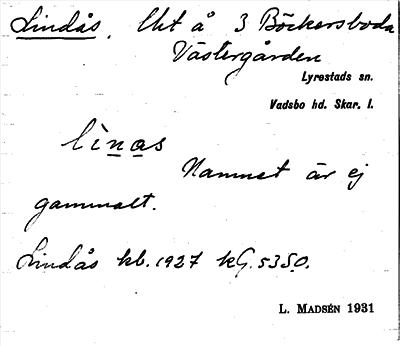 Lindås. Uht å 3 Böckersboda
Västergården
Lyrestads sn.
Vadsbo hd. Skar. l.
lìnas
Namnet är ej
gammalt.
Lindås kb. 1927 kG. 5350.
L. MADSÉN 1931